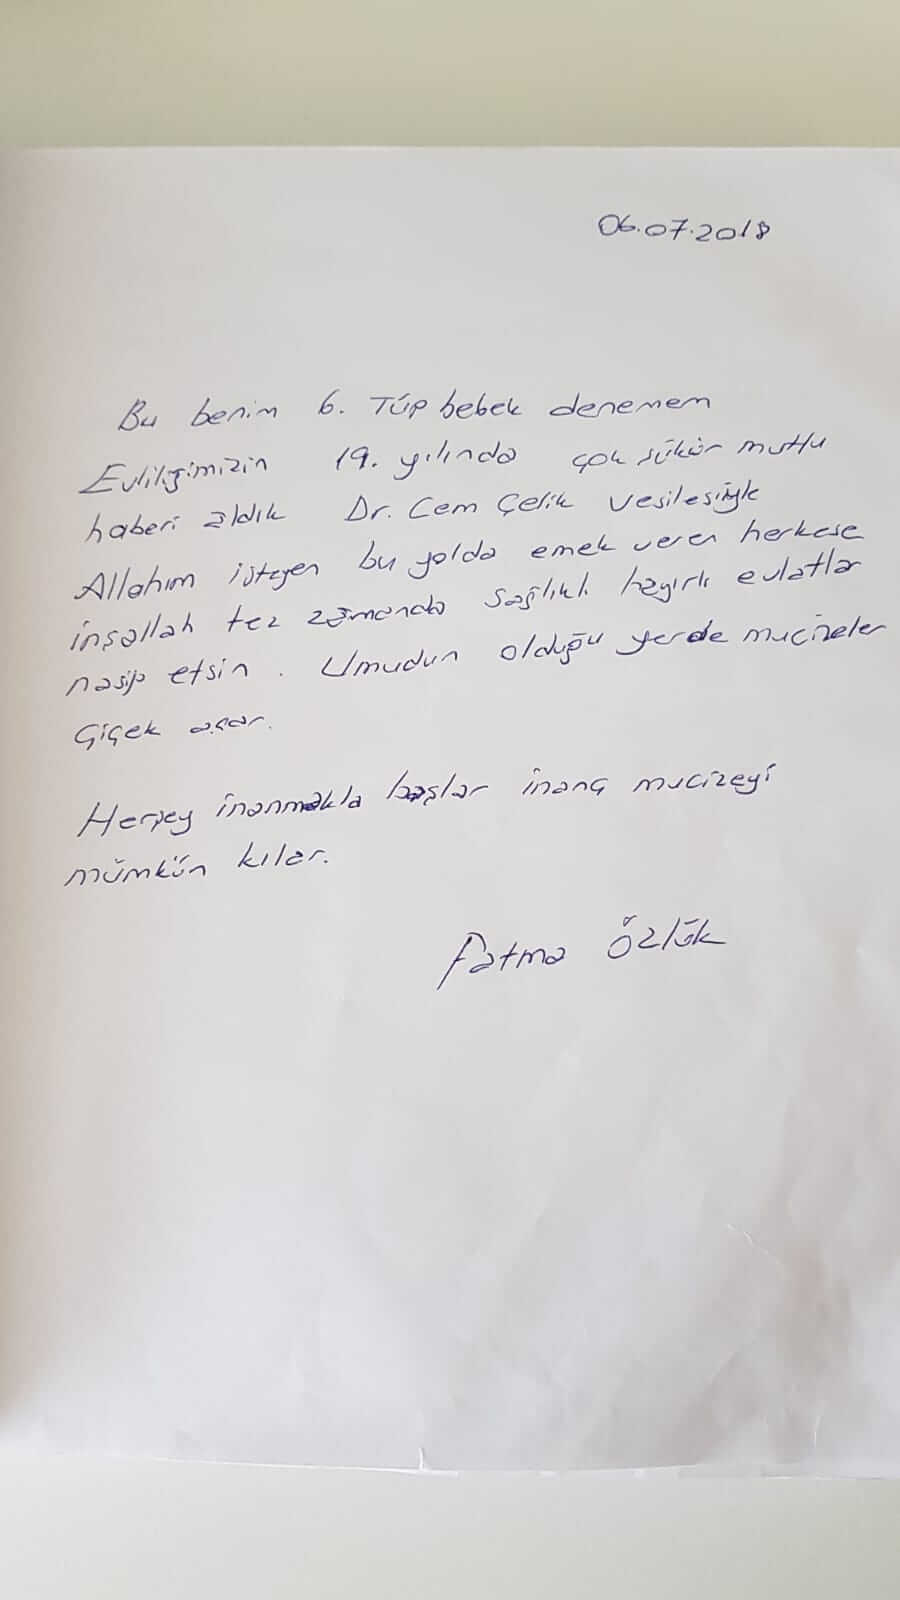 06.07.2018
Bu benim 6. Tüp bebek denemem
Evliliğimizin 19. yılında çok şükür mutlu
haberi aldık Dr. Cem Çelik vesilesiyle
Allahım isteyen bu yolda emek veren herkese
inşallah tez zamanda sağlıklı hayırlı evlatlar
nasip etsin. Umudun olduğu yerde mucizeler
Çiçek açar.
Herşey inanmakla başlar inanç mucizeyi
mümkün kılar.
Fatma Özlük